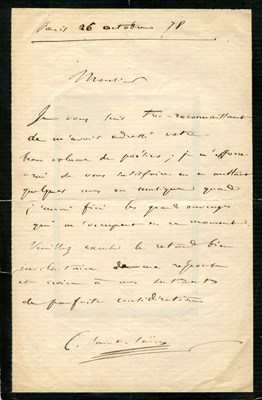 Paris 26 octobre 78
Monsieur
Je vous suis très-reconnaissant
de m'avoir adressé votre
beau volume de poésies ; je m'efforce-
rai de vous satisfaire en en mettant
quelques unes en musique quand
j'aurai fini les grands ouvrages
qui m'occupent en ce moment.
Veuillez excuser le retard bien
involontaire de ma réponse
et croire à mes sentiments
de parfaite considération
C. Saint-Saëns